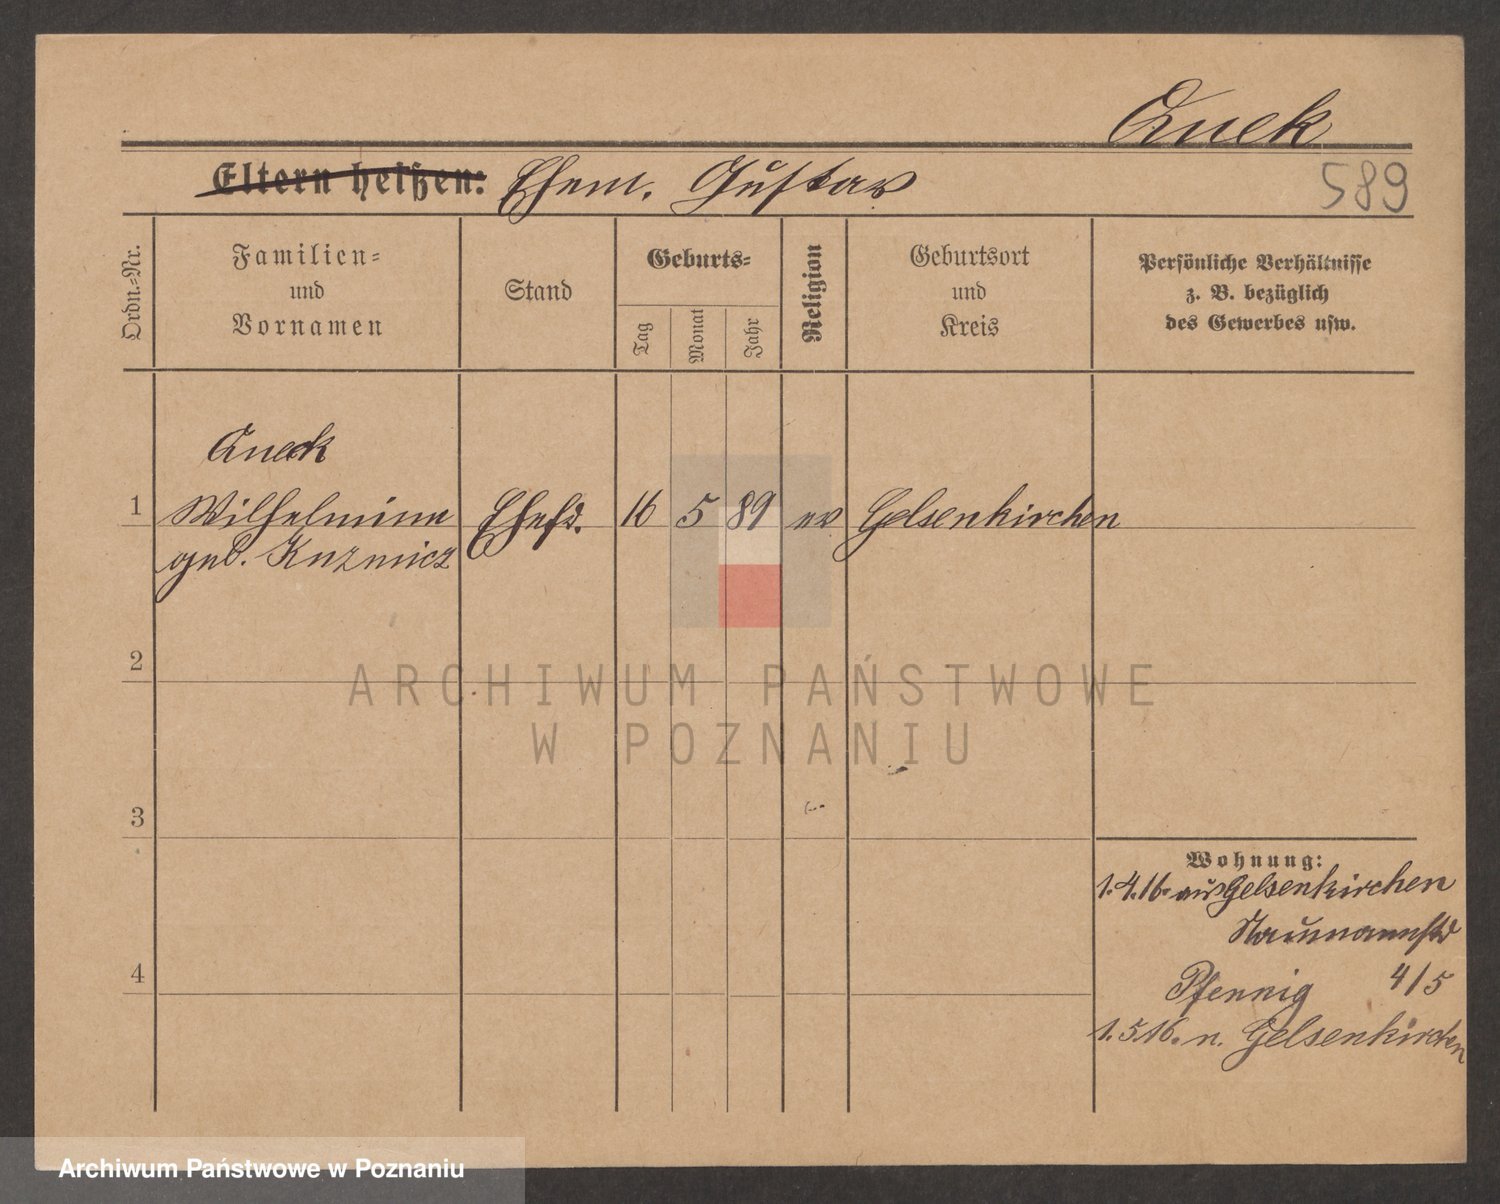 Quek
Eltern heißen: Ehem. Gustav
589
Ordn.-Nr.
Familien-
und
Vornamen
Stand
Geburts-
Tag
Monat
Jahr
Religion
Geburtsort
und
Kreis
Persönliche Verhältnisse
z. B. bezüglich
des Gewerbes usw.
Queck
1 Wilhelmine Ehefr. 16 5 89 ev Gelsenkirchen
geb. Kuzmicz
2
ARCHIWUM PAŃSTWOWE
W POZNANIU
3
Wohnung:
1.4.16. aus Gelsenkirchen
Naumannstr
4
Pfennig 4/5
1.5.16. n. Gelsenkirchen
Archiwum Państwowe w Poznaniu